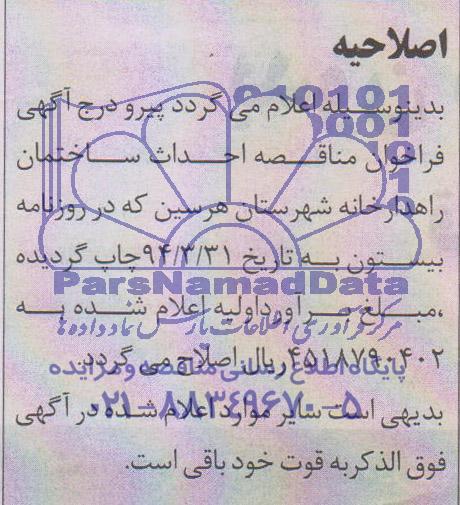 اصلاحیه
بدینوسیله اعلام می گردد پیرو درج آگهی
فراخوان مناقصه احداث ساختمان
راهدارخانه شهرستان هرسین که در روزنامه
بیستون به تاریخ ۹۴/۳/۳۱ چاپ گردیده
ParsNamadData
،مبلغ برآورد اولیه اعلام شده به
مرکز فرآوری اطلاعات پارس نماد داده ها
۴۵۱۸۷۹۰۴۰۲ ریال اصلاح می گردد.
پایگاه اطلاع رسانی مناقصه و مزایده
بدیهی است سایر موارد اعلام شده در آگهی
۰۲۱-۸۸۳۴۹۶۷۰-۵
فوق الذکر به قوت خود باقی است.